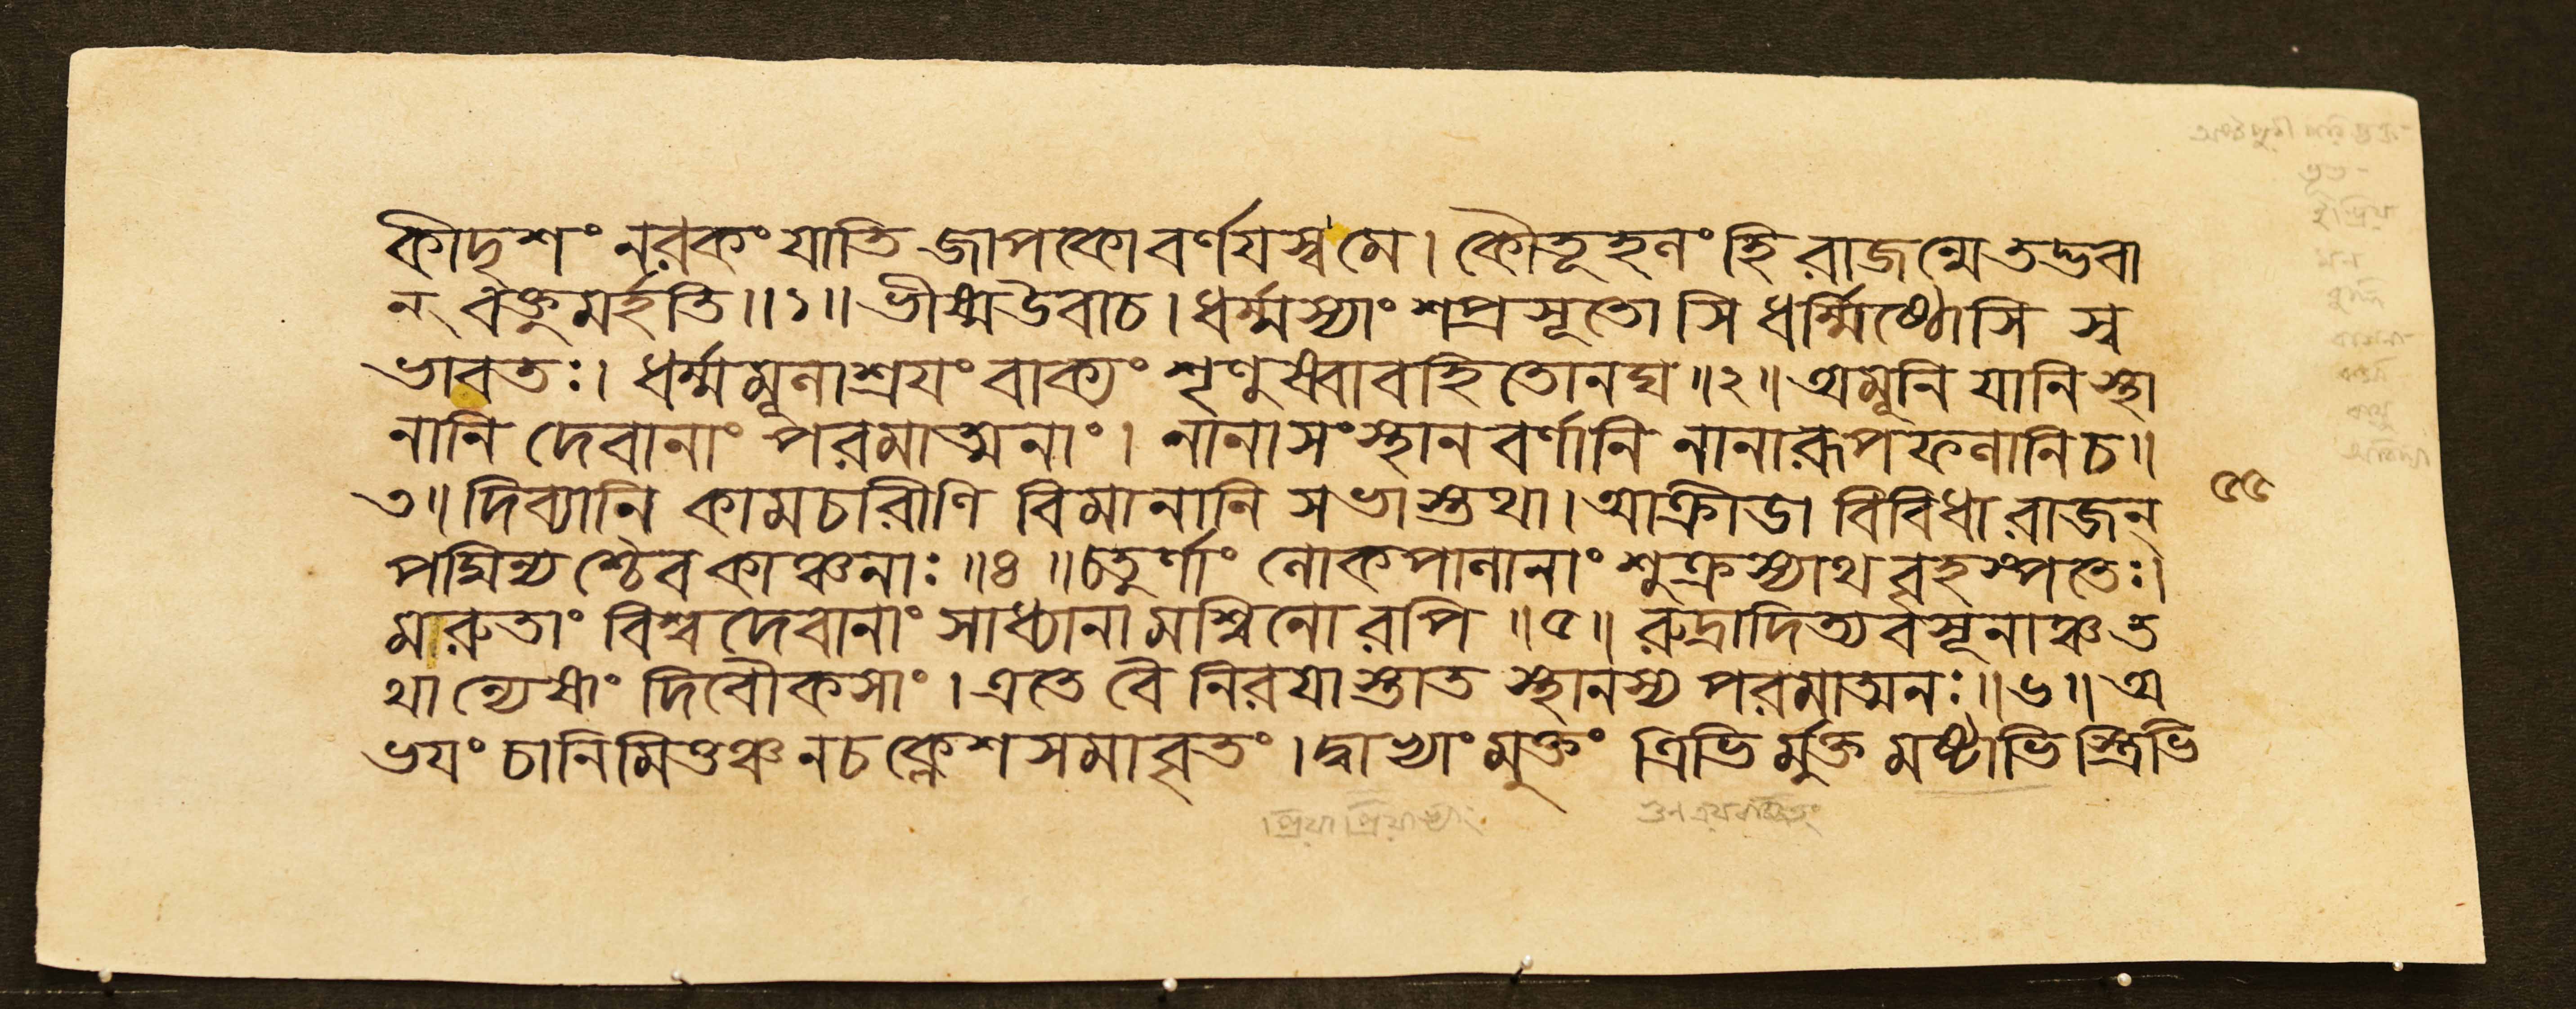 কীদৃশং নরকং যাতি জাপকো বর্ণযস্ব মে। কৌতূহলং হি রাজন্মে তদ্ভবা
ন্ বক্তুমর্হতি॥১॥ভীষ্মউবাচ। ধর্ম্মস্যাংশপ্রসূতোসি ধর্ম্মিষ্ঠোসি স্ব
ভাবতঃ। ধর্ম্মমূলাশ্রযং বাক্যং শৃণুষ্বাবহিতোনঘ॥২॥অমূনি যানি স্থা
নানি দেবানাং পরমাত্মনাং। নানাসংস্থানবর্ণানি নানারূপফলানিচ॥
৩॥দিব্যানি কামচারীণি বিমানানি সভাস্তথা। আক্রীডা বিবিধা রাজন্
পদ্মিন্যশ্চৈবকাঞ্চনাঃ॥৪॥চতুর্ণাং লোকপালানাং শুক্রস্যাথ বৃহস্পতেঃ।
মারুতাং বিশ্বদেবানাং সাধ্যানামশ্বিনোরপি॥৫॥রুদ্রাদিত্যবসূনাঞ্চ ত
থান্যেষাং দিবৌকসাং। এতে বৈ নিরযাস্তাত স্থানস্য পরমাত্মনঃ॥৬॥অ
ভযং চানিমিত্তঞ্চ নচ ক্লেশসমাবৃতং। দ্বাভ্যাং মুক্তং ত্রিভির্মুক্তমষ্টাভিস্ত্রিভি
৫৫
ভূত-
ইন্দ্রিয
মন
বুদ্ধি